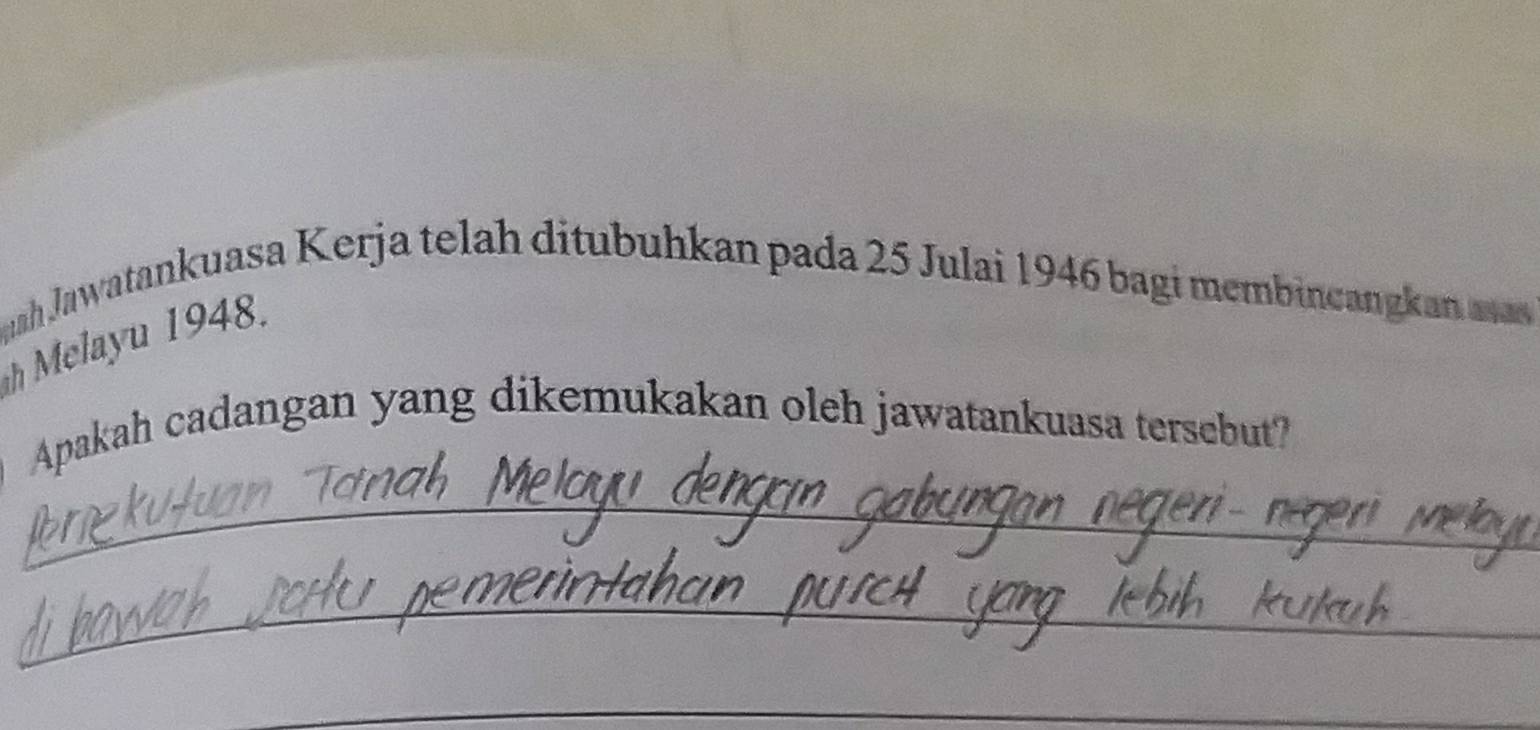 Jawatankuasa Kerja telah ditubuhkan pada 25 Julai 1946 bagi membincangkan asas
Melayu 1948.
Apakah cadangan yang dikemukakan oleh jawatankuasa tersebut?
Persekutuan Tanah Melayu dengan gabungan negeri-negeri Melayu
di bawah satu pemerintahan pusat yang lebih kukuh